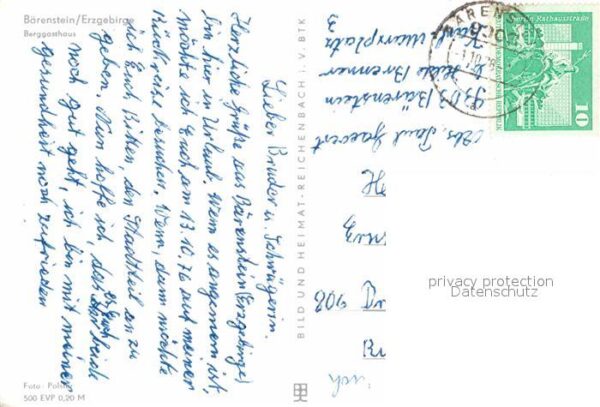 Bärenstein/Erzgebirge
Berggasthaus
Lieber Bruder u. Schwägerin.
Herzliche Grüße aus Bärenstein (Erzgebirge)
bin hier in Urlaub. Wenn es angenehm ist,
möchte ich Euch am 13.10.76 auf meiner
Rückreise besuchen. Wenn, dann möchte
ich Euch bitten, den Stadtteil an zu
geben. Nun hoffe ich, das es Euch
noch gut geht, ich bin mit meiner
gesundheit noch zufrieden
Foto: 
500 EVP 0,20 M
BILD UND HEIMAT · REICHENBACH i. V. BTK
Abs. Paul
9303 Bärenstein
b. Hilde Brenner
Karl-Marxplatz
3
BÄRENS
9303
Berlin Rathausstraße
10
902
privacy protection
Datenschutz